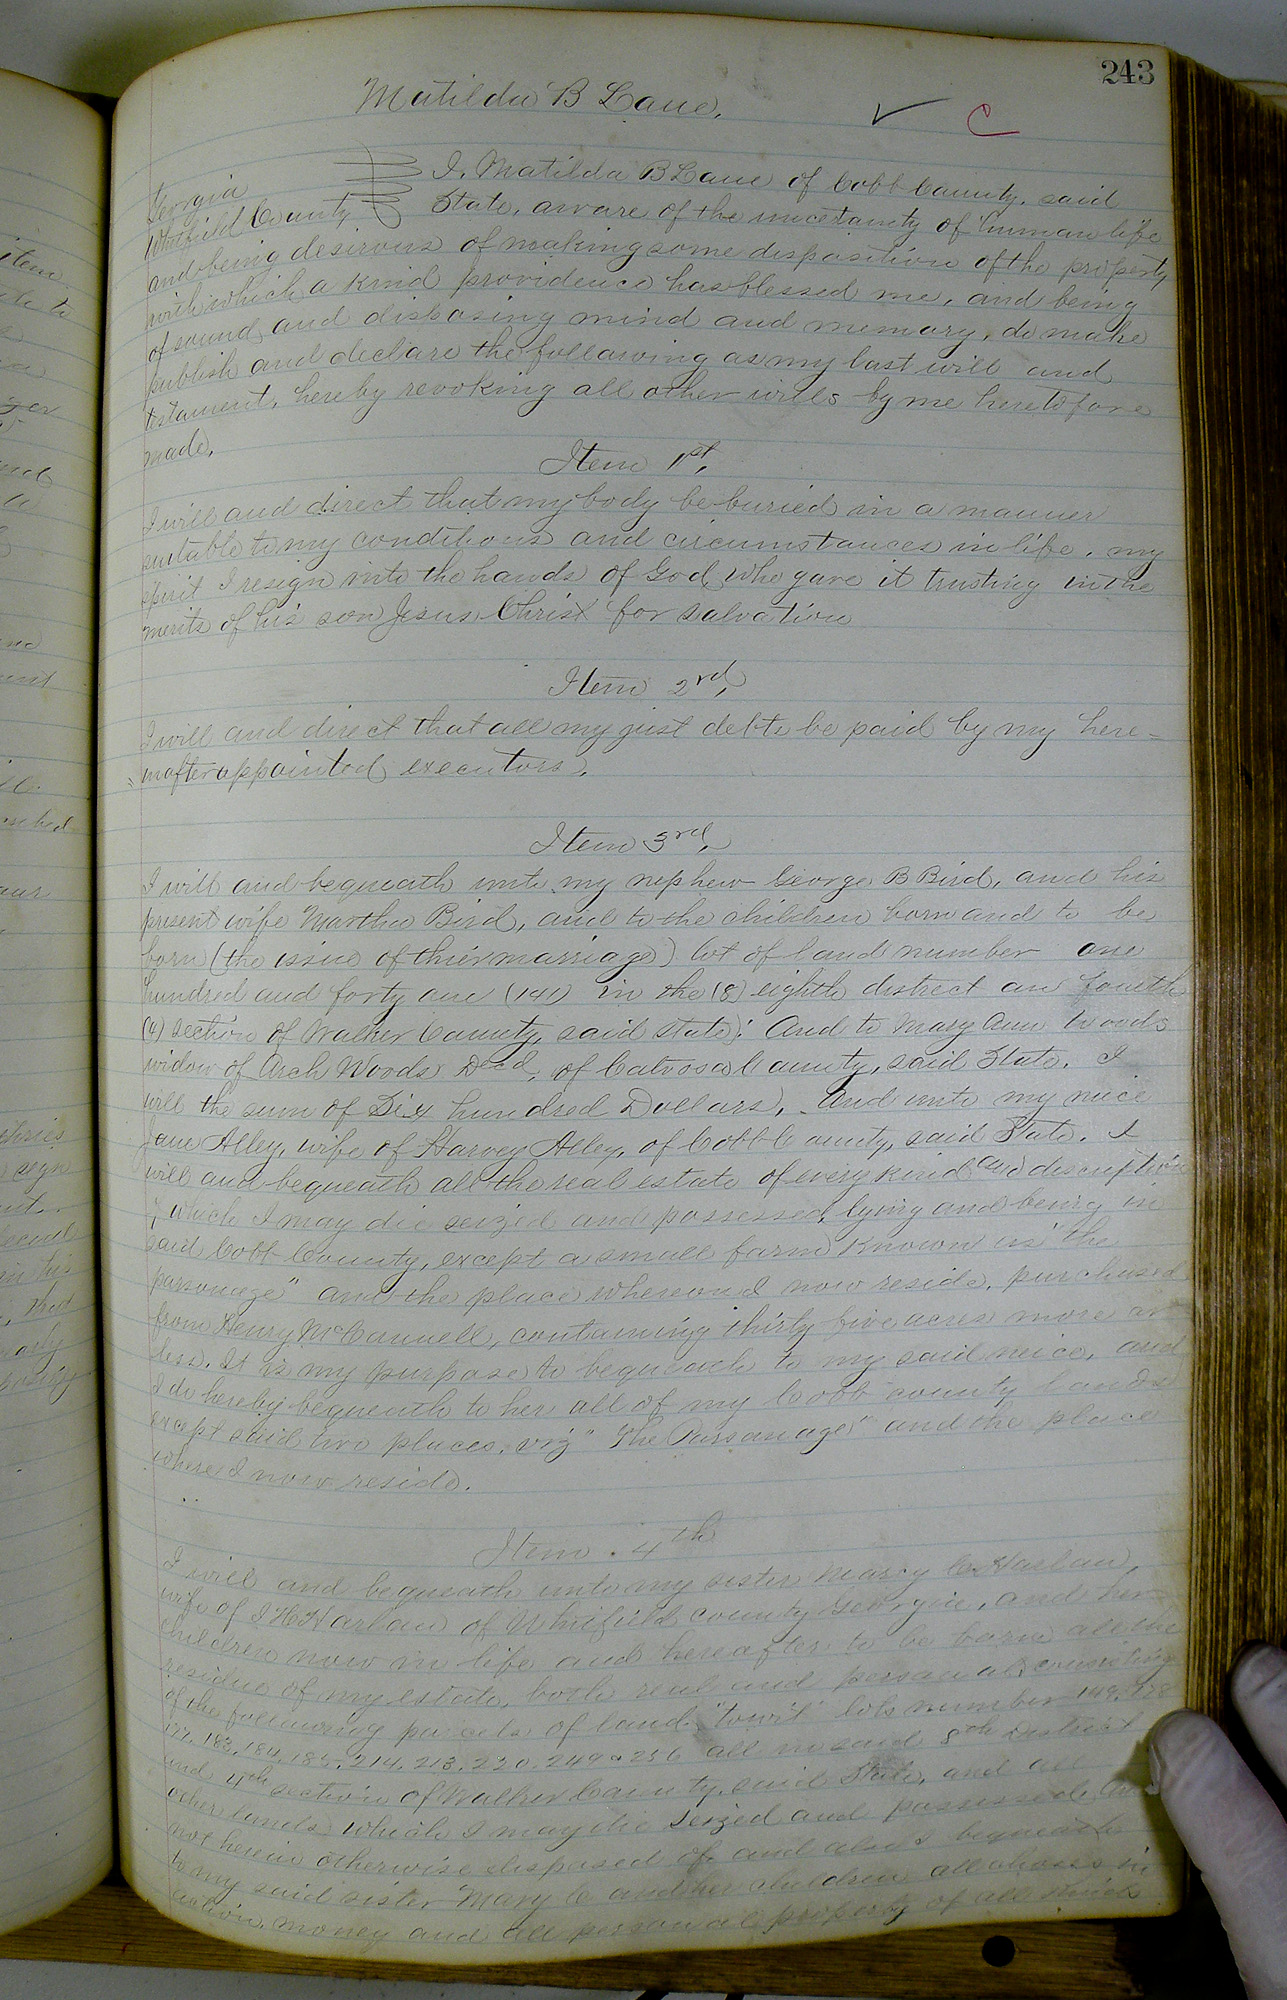 243
Matilda B Lane.
✓ C
Georgia
Whitfield County
I, Matilda B Lane of Cobb County, said
State, aware of the uncertainty of human life
and being desirous of making some disposition of the property
with which a kind providence has blessed me, and being
of sound and disposing mind and memory, do make
publish and declare the following as my last will and
testament, hereby revoking all other wills by me heretofore
made,
Item 1st,
I will and direct that my body be buried in a manner
suitable to my conditions and circumstances in life, my
spirit I resign into the hands of God, who gave it trusting in the
merits of his son Jesus Christ for salvation
Item 2rd,
I will and direct that all my just debts be paid by my here=
inafter appointed executors.
Item 3rd,
I will and bequeath unto my nephew George B Bird, and his
present wife Martha Bird, and to the children born and to be
born (the issue of thier marriage) lot of land number one
hundred and forty one (141) in the (8) eighth district an fourth
(4) section of Walker County, said state; And to Mary Ann Woods
widow of Arch Woods Decd, of Catoosa County, said State. I
will the sum of Six hundred Dollars, And unto my niece
Jane Alley, wife of Harvey Alley, of Cobb County, said State. I
will and bequeath all the real estate of every kind and discription
of which I may die seized and possessed, lying and being in
said Cobb County, except a small farm known as "the
parsonage" and the place whereon I now reside, purchased
from Henry McConnell, containing thirty five acres more or
less. It is my purpose to bequeath to my said neice, and
I do hereby bequeath to her all of my Cobb county lands
except said two places, viz "The Parsonage" and the place
where I now reside.
Item . 4th
I will and bequeath unto my sister Mary C. Harlan,
wife of J H Harlan of Whitfield county Georgia, and her
children now in life and hereafter to be born all the
residue of my estate, both real and personal, consisting
of the following parcels of land, "towit" lots number 149, 178
177, 183, 184, 185, 214, 213, 220, 249 & 256 all in said 8th District
and 4th section of Walker County, said State, and all
other lands which I may die seized and possessed, and
not herein otherwise disposed of, and also I bequeath
to my said sister Mary C. and her children all choses in
action, money and all personal property of all kinds